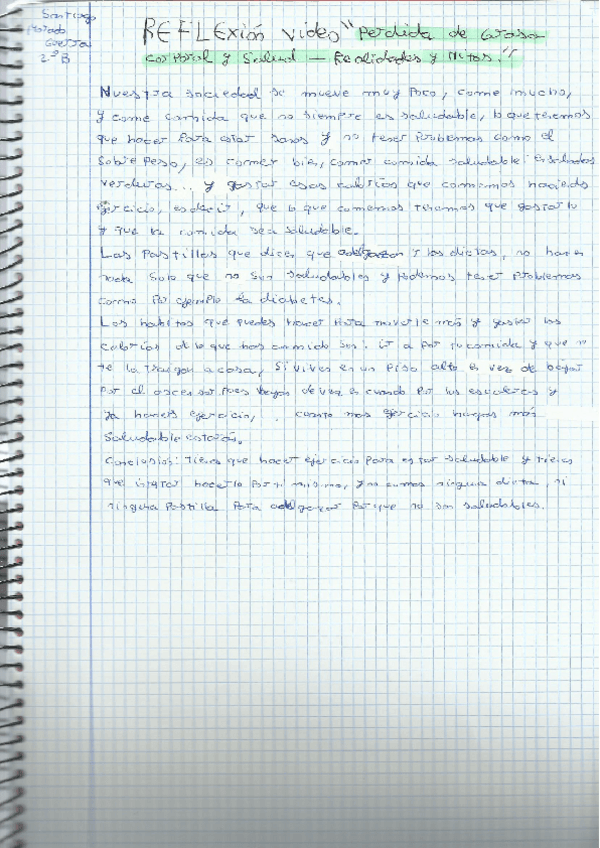 Santiago
Morado
Guerra
2ºB
REFLExión video "Perdida de Grasa
corporal y Salud — Realidades y Mitos."
Nuestra sociedad se mueve muy poco, come mucho,
y come comida que no siempre es saludable, lo que tenemos
que hacer para estar sanos y no tener problemas como el
sobrepeso, es comer bien, comer comida saludable: ensaladas
verduras... y gastar esas calorías que comemos haciendo
ejercicio, es decir, que lo que comemos tenemos que gastarlo
y que la comida sea saludable.
Las Pastillas que dicen que adelgazan y las dietas, no hacen
nada solo que no son saludables y podemos tener problemas
como por ejemplo la diabetes.
Los habitos que puedes hacer para moverte más y gastar las
calorías de lo que has comido son: ir a por tu comida y que no
te la traigan a casa, si vives en un piso alto en vez de bajar
por el ascensor pues bajas de vez en cuando por las escaleras y
ya haces ejercicio, cuanto mas ejercicio hagas más
saludable estarás.
Conclusión: Tienes que hacer ejercicio para estar saludable y tienes
que lograr hacerlo por ti mismo, y no comas ninguna dieta, ni
ninguna Pastilla Para adelgazar Porque no son saludables.